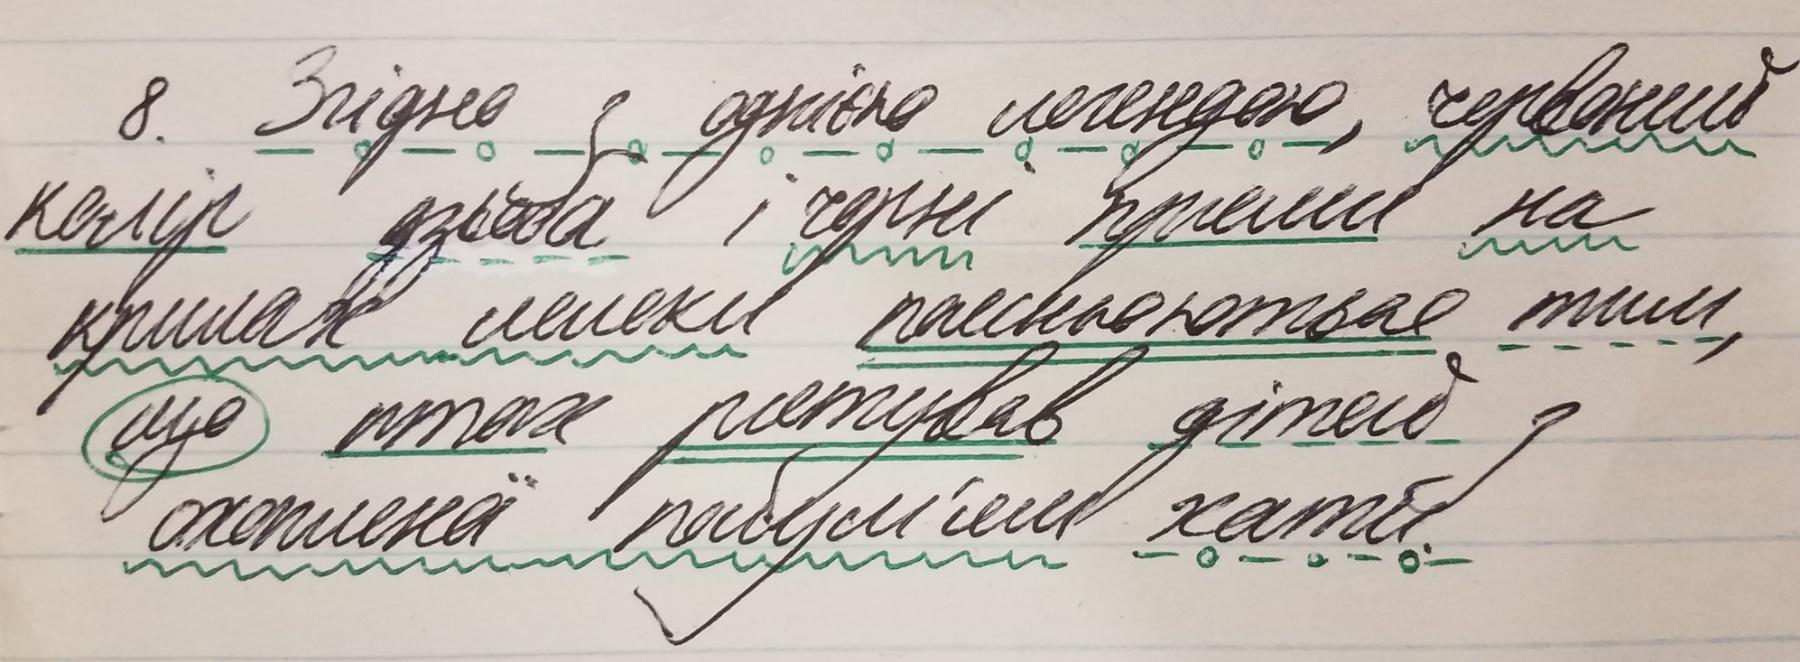 8. Згідно з однією легендою, червоний
колір дзьоба і чорні плями на
крилах лелеки пояснюються тим,
що птах рятував дітей з
охопленої полум'ям хати.